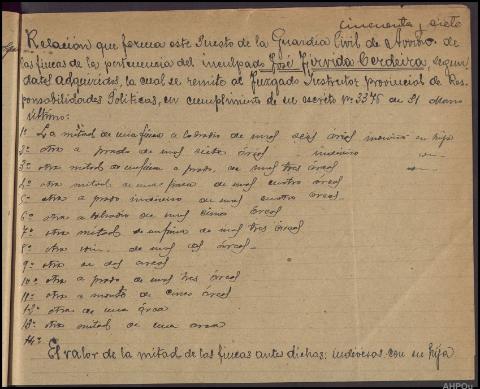 cincuenta y siete
Relación que forma este Puesto de la Guardia Civil de de
las fincas de la pertenencia del inculpado José Cerdeira, segun
datos adquiridos, la cual se remite al Juzgado Instructor provincial de Res-
ponsabilidades Politicas, en cumplimiento de su escrito nº 3375 de 31
último:
1ª La mitad de una finca a labradio de unas seis áreas su hija
2ª otra a prado de unas siete áreas indiviso
3ª otra mitad de a prado de unas tres áreas
4ª otra mitad de una finca de unas cuatro áreas
5ª otra a prado indiviso de unas cuatro áreas
6ª otra a labradio de unas cinco áreas
7ª otra mitad de una finca de unas tres áreas
8ª otra de unas dos áreas
9ª otra de dos áreas
10ª otra a prado de unas tres áreas
11ª otra a monte de cinco áreas
12ª otra de una área
13ª otra mitad de una area
14ª
El valor de la mitad de las fincas antes dichas, indivisas con su hija
AHPOu